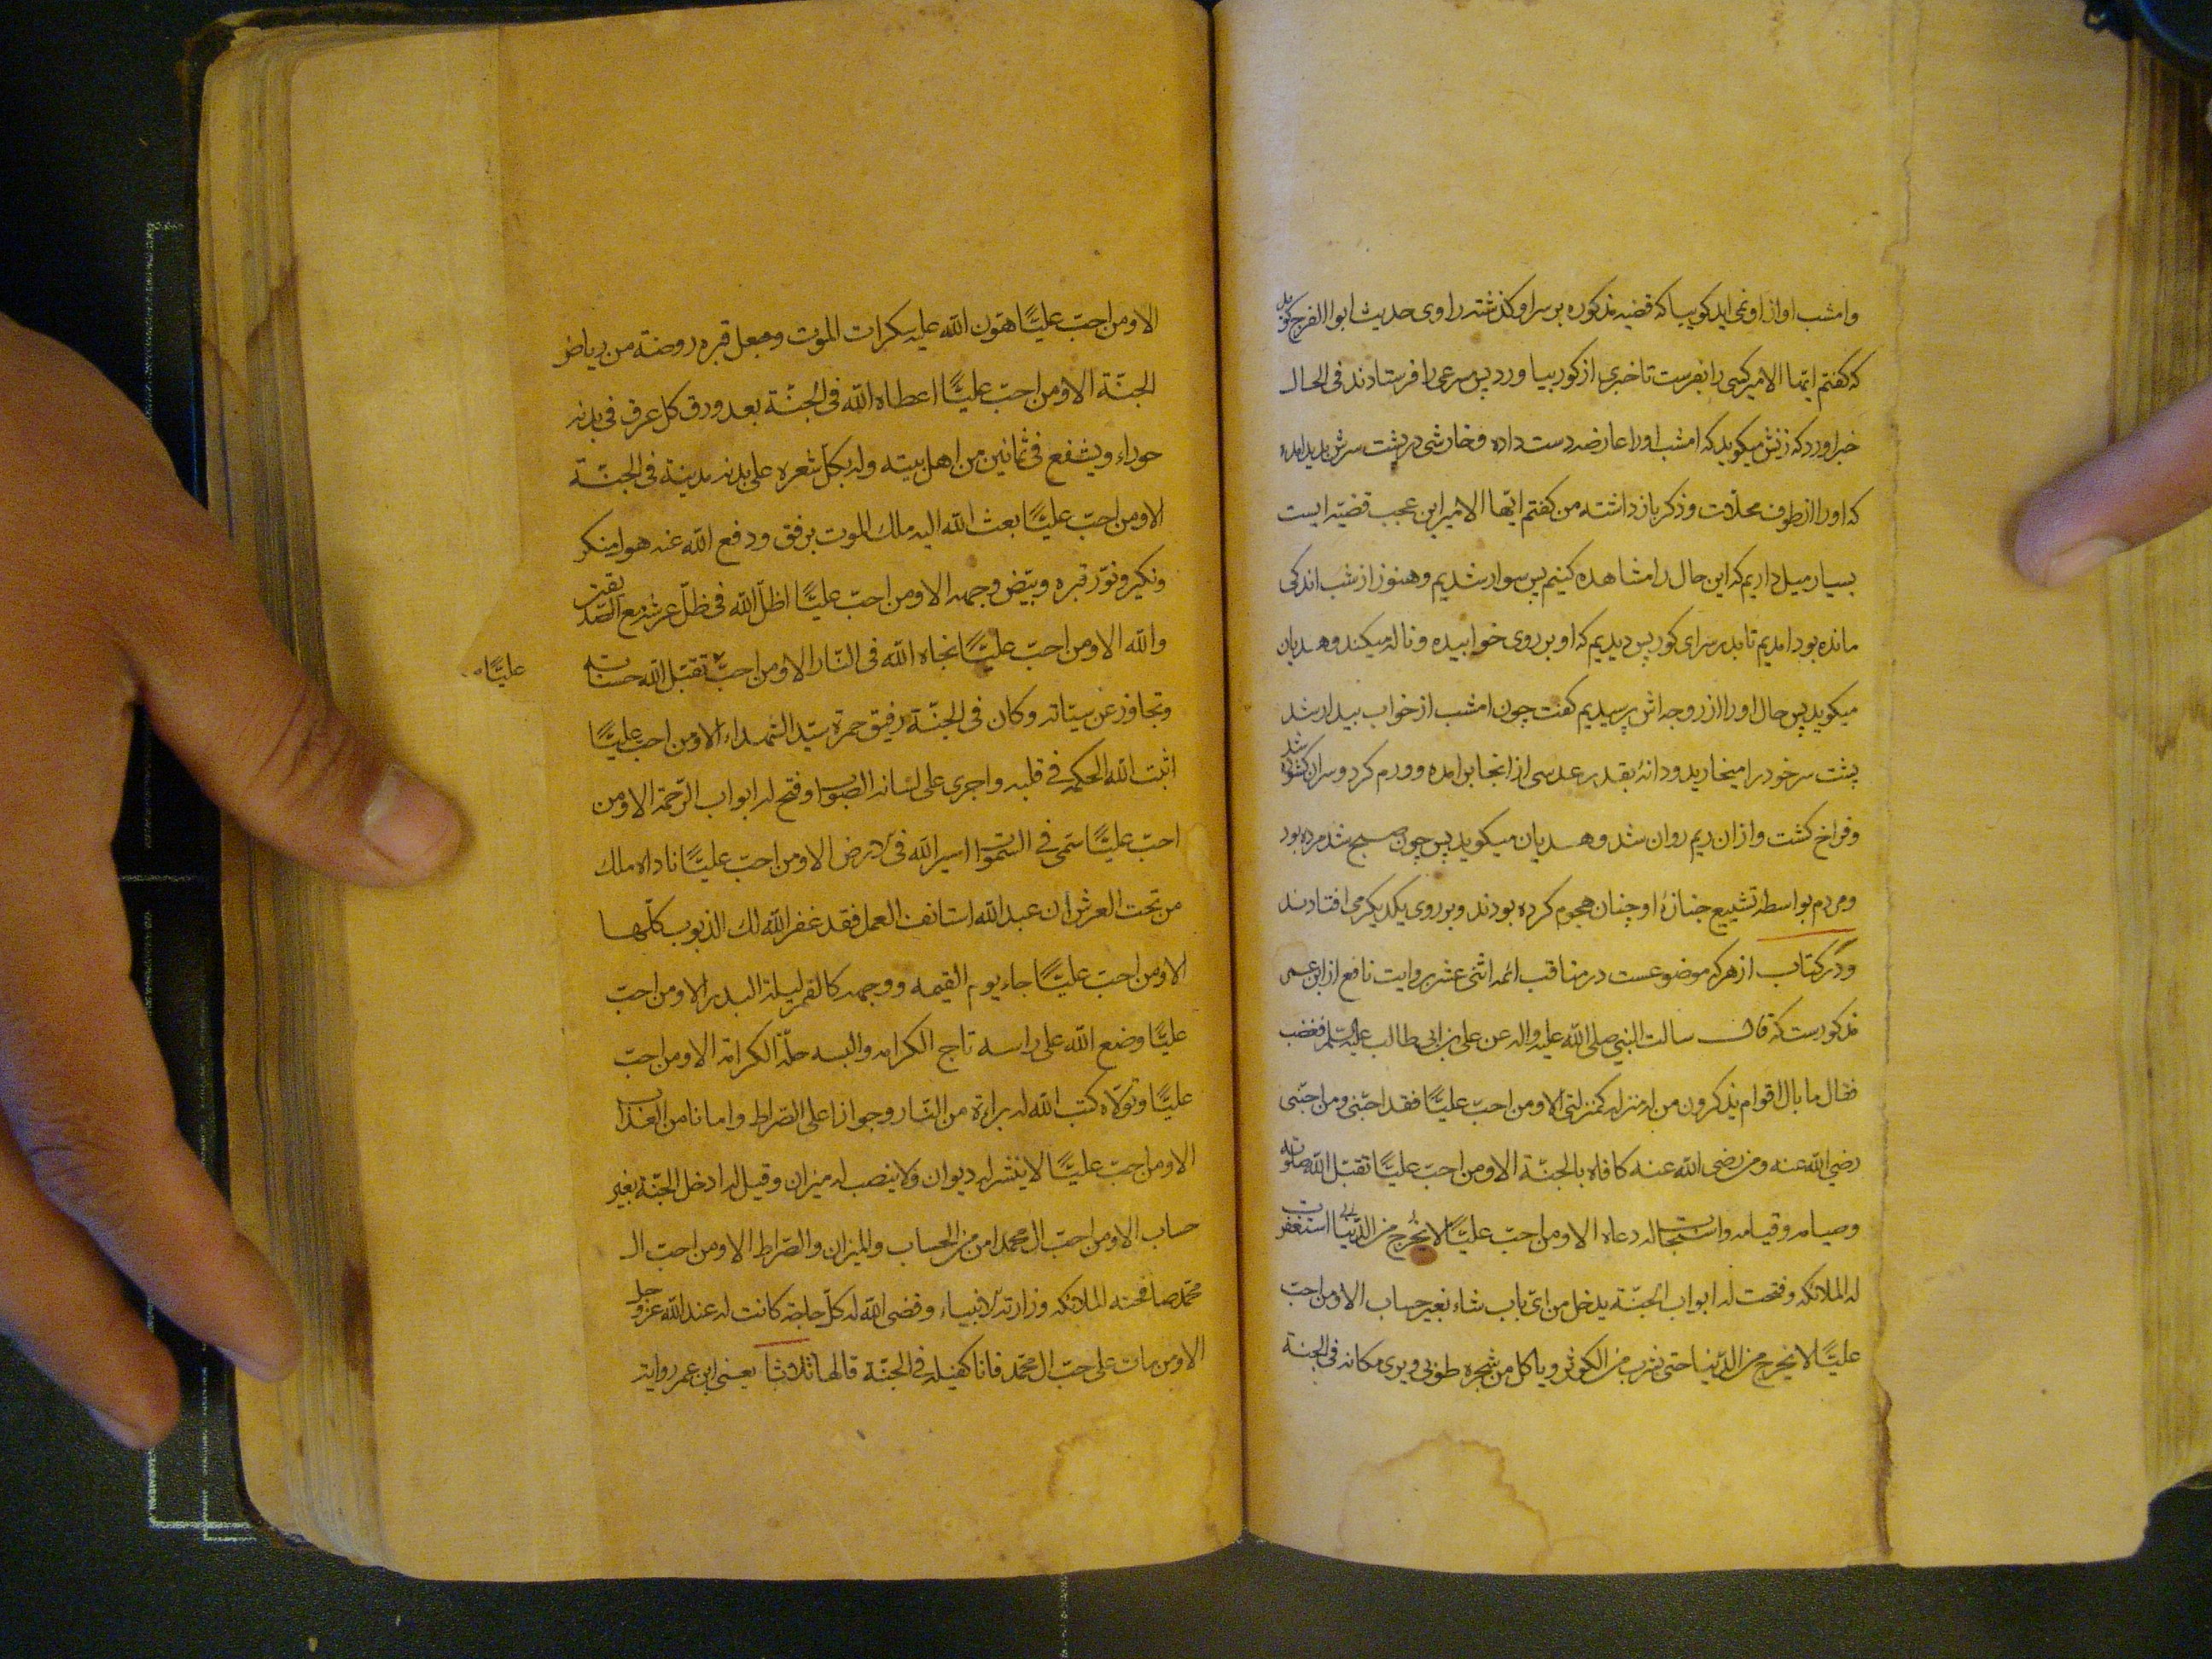 وامشب اواز او نمی اید کوییا که قضیه مذکوره بر سر او کذشته راوی حدیث ابوالفرج کوید
که کفتم ایها الامیر کسی را بفرست تا خبری از کور بیاورد پس سرعی را فرستادند فی الحال
خبر اورد که زنش میکوید که امشب او را عارضه دست داده و خارشی در پشت سرش پدید امده
که او را از طوف محلات و ذکر باز داشته من کفتم ایها الامیر این عجب قضیه ایست
بسیار میل داریم که این حال را مشاهده کنیم پس سوار شدیم و هنوز از شب اندکی
مانده بود امدیم تا بدر سرای کور پس دیدیم که او بر روی خوابیده و ناله میکند و هدیان
میکوید پس حال او را از زوجه اش پرسیدیم کفت چون امشب از خواب بیدار شد
پشت سر خود را میخارید و دانه بقدر عدسی از انجا بر امده و ورم کرد و سر ان کشوده شد
و فراخ کشت و از ان ریم روان شد و هدیان میکوید پس چون صبح شد مرده بود
و مردم بواسطه تشییع جنازه او چنان هجوم کرده بودند و بر روی یکدیکر می افتادند
و دکر کتاب از هر که موضوعست در مناقب ائمه اثنی عشر بروایت نافع از ابن عمر
مذکورست که قال سالت النبی صلی الله علیه واله عن علی بن ابی طالب علیه السلم فغضب
فقال ما بال اقوام یذکرون من له منزله کمنزلتی الا ومن احبّ علیًّا فقد احبّنی ومن احبّنی
رضی الله عنه ومن رضی الله عنه کافاه بالجنّة الا ومن احبّ علیًّا تقبّل الله صلوته
وصیامه وقیامه واستجاب له دعاه الا ومن احبّ علیًّا لا یخرج من الدّنیا استغفرت
له الملائکه وفتحت له ابواب الجنّة یدخل من ایّ باب شاء بغیر حساب الا ومن احبّ
علیًّا لا یخرج من الدّنیا حتی یشرب من الکوثر ویاکل من شجره طوبی ویری مکانه فی الجنة
الا ومن احبّ علیًّا هوّن الله علیه سکرات الموت وجعل قبره روضة من ریاض
الجنّة الا ومن احبّ علیًّا اعطاه الله فی الجنّة بعدد ورق کل عرق فی بدنه
حوراء ویشفع فی ثمانین من اهل بیته وله بکلّ شعره علی بدنه مدینة فی الجنّة
الا ومن احبّ علیًّا بعث الله الیه ملك الموت برفق ودفع الله عنه هول منکر
ونکیر ونوّر قبره وبیّض وجهه الا ومن احبّ علیًّا اظلّ الله فی ظلّ عرشه مع الصّدیقین
والله الا ومن احبّ علیًّا نجاه الله فی النّار الا ومن احبّ تقبّل الله حسناته
علیًّا
وتجاوز عن سیئاته وکان فی الجنّة رفیق حمزة سیّد الشهداء الا ومن احبّ علیًّا
اثبت الله الحکمه فی قلبه واجری علی لسانه الصواب وفتح له ابواب الرّحمة الا ومن
احبّ علیًّا سمّی فی السّموات اسیر الله فی الارض الا ومن احبّ علیًّا ناداه ملك
من تحت العرش ان عبد الله استانف العمل فقد غفر الله لك الذنوب کلّها
الا ومن احبّ علیًّا جاء یوم القیمه ووجهه کالقمر لیلة البدر الا ومن احبّ
علیًّا وضع الله علی راسه تاج الکرامه والبسه حلّة الکرامة الا ومن احبّ
علیًّا وتولّاه کتب الله له براءة من النّار وجوازا علی الصّراط وامانا من العذاب
الا ومن احبّ علیًّا لا ینشر له دیوان ولا ینصب له میزان وقیل له ادخل الجنّة بغیر
حساب الا ومن احبّ ال محمد امن من الحساب والمیزان والصّراط الا ومن احبّ ال
محمّد صافحته الملائکه وزارته الانبیاء وقضی الله له کلّ حاجة کانت له عند الله عزّ وجل
الا ومن مات علی حبّ ال محمّد فانا کفیله فی الجنّة قالها ثلاثا یعنی ابن عمر روایة